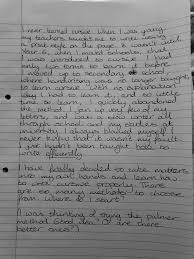 I never learned cursive. When I was young
my teachers taught me to write using
a print style on the page. It wasn't until
Year 6, when I moved schools, that
I was introduced to cursive. I had
only two terms to learn it before
I moved up to secondary school,
where handwriting was no longer taught.
to learn cursive. With no explanation
why I had to learn it, and so little
time to learn, I quickly abandoned
the method. I pen up few of my
letters, and was a slow writer all
through school and my studies at
university. I always blamed myself. I
never knew that it wasn't my fault.
I just hadn't been taught how to
write efficiently.
I have finally decided to take matters
into my own hands and learn how
to write cursive properly. There
are so many methods to choose
from, where do I start?
I was thinking of trying the palmer
method. Good idea? Or are there
better ones?